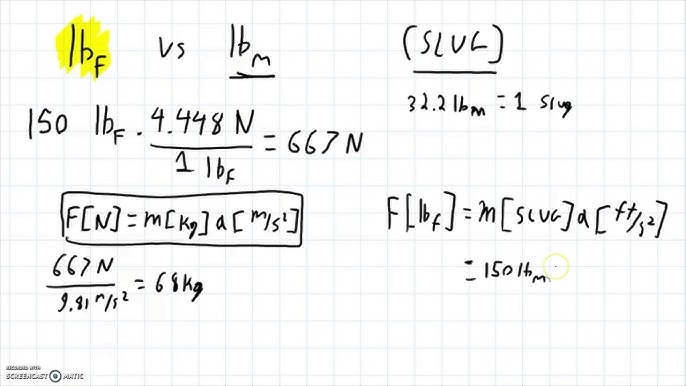 lb_F vs lb_m
150 lb_F · 4.448 N / 1 lb_F = 667 N
F[N] = m[kg] a[m/s²]
667 N / 9.81 m/s² = 68 kg
(SLUG]
32.2 lb_m = 1 Slug
F[lb_f] = m[SLUG] a[ft/s²]
= 150 lb_m
RECORDED WITH
SCREENCAST MATIC